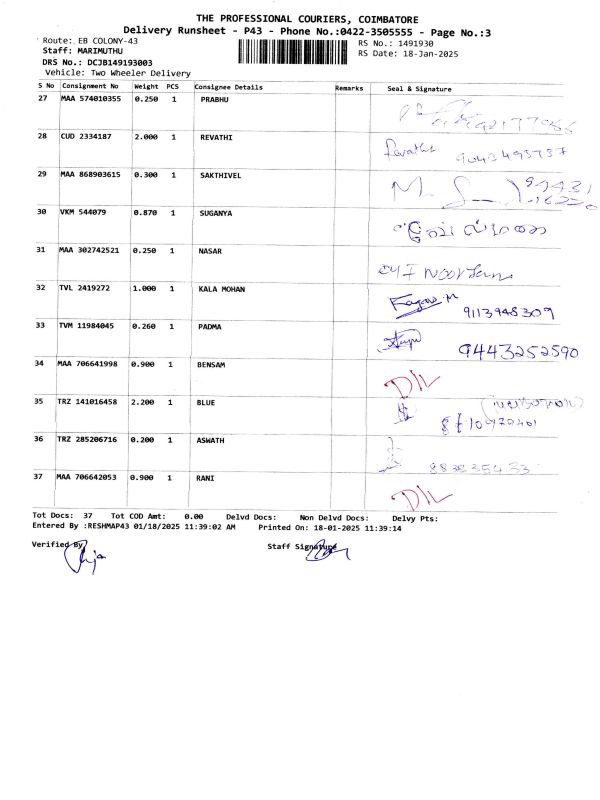 THE PROFESSIONAL COURIERS, COIMBATORE
Delivery Runsheet - P43 - Phone No.:0422-3505555 - Page No.:3
Route: EB COLONY-43 RS No.: 1491930
Staff: MARIMUTHU RS Date: 18-Jan-2025
DRS No.: DCJB149193003
Vehicle: Two Wheeler Delivery
S No Consignment No Weight PCS Consignee Details Remarks Seal & Signature
27 MAA 574010355 0.250 1 PRABHU
28 CUD 2334187 2.000 1 REVATHI Revathi
29 MAA 868903615 0.300 1 SAKTHIVEL
30 VKM 544079 0.870 1 SUGANYA
31 MAA 302742521 0.250 1 NASAR
32 TVL 2419272 1.000 1 KALA MOHAN 9113948309
33 TVM 11984045 0.260 1 PADMA 9443252590
34 MAA 706641998 0.900 1 BENSAM D/L
35 TRZ 141016458 2.200 1 BLUE
36 TRZ 285206716 0.200 1 ASWATH
37 MAA 706642053 0.900 1 RANI D/L
Tot Docs: 37 Tot COD Amt: 0.00 Delvd Docs: Non Delvd Docs: Delvy Pts:
Entered By :RESHMAP43 01/18/2025 11:39:02 AM Printed On: 18-01-2025 11:39:14
Verified By Staff Signature